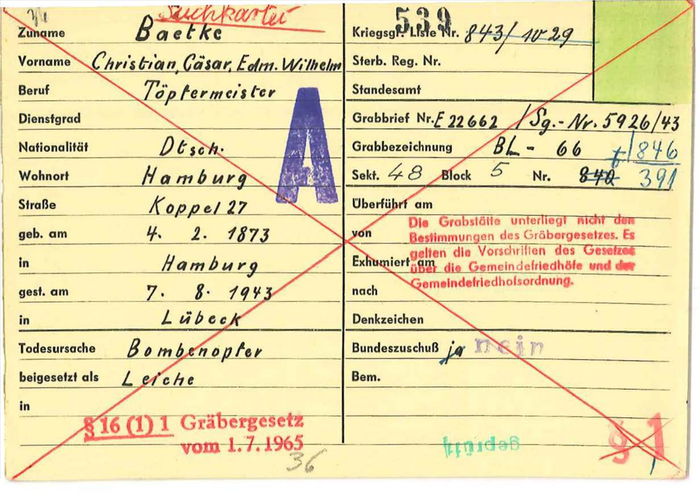 Suchkartei
539
Zuname Baetke
Vorname Christian, Cäsar, Edm. Wilhelm
Beruf Töpfermeister
Dienstgrad
Nationalität Dtsch.
Wohnort Hamburg
Straße Koppel 27
geb. am 4. 2. 1873
in Hamburg
gest. am 7. 8. 1943
in Lübeck
Todesursache Bombenopfer
beigesetzt als Leiche
in
§ 16 (1) 1 Gräbergesetz
vom 1.7.1965
36
A
Kriegsgr. Liste Nr. 843/1029
Sterb. Reg. Nr.
Standesamt
Grabbrief Nr. E 22662 / Sg.-Nr. 5926/43
Grabbezeichnung BL - 66 1846
Sekt. 48 Block 5 Nr. 840 391
Überführt am
von
Exhumiert am
nach
Die Grabstätte unterliegt nicht den
Bestimmungen des Gräbergesetzes. Es
gelten die Vorschriften des Gesetzes
über die Gemeindefriedhöfe und der
Gemeindefriedhofsordnung.
Denkzeichen
Bundeszuschuß ja nein
Bem.
geprüft
§ 1